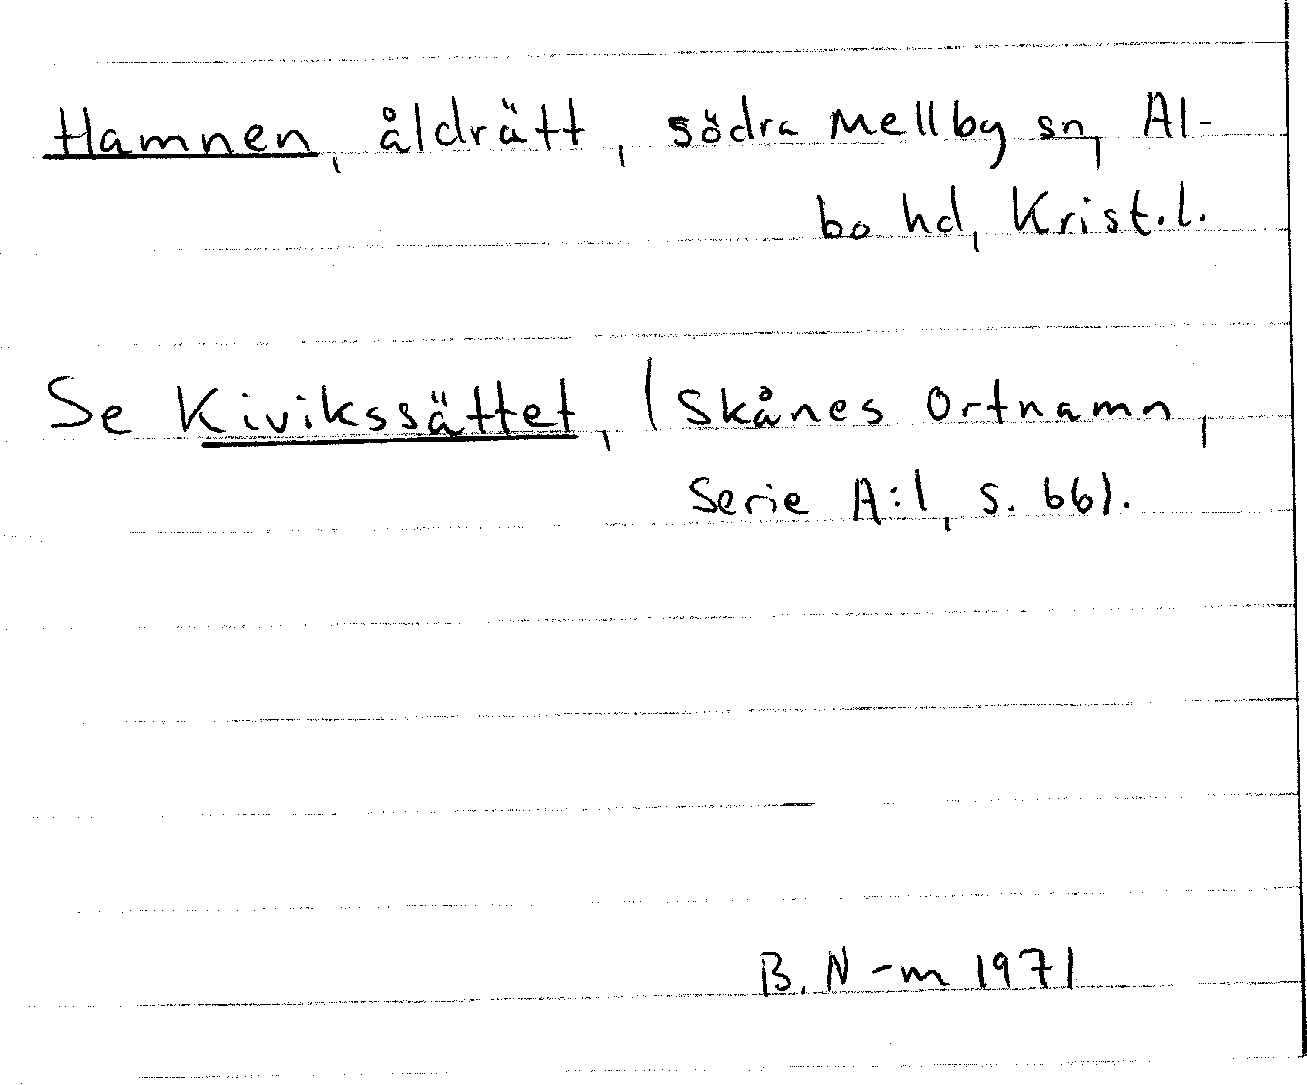 Hamnen, åldrätt, södra Mellby sn, Al-
bo hd, Krist.l.
Se Kivikssättet, (Skånes Ortnamn,
Serie A:1, s. 66).
B. N-m 1971